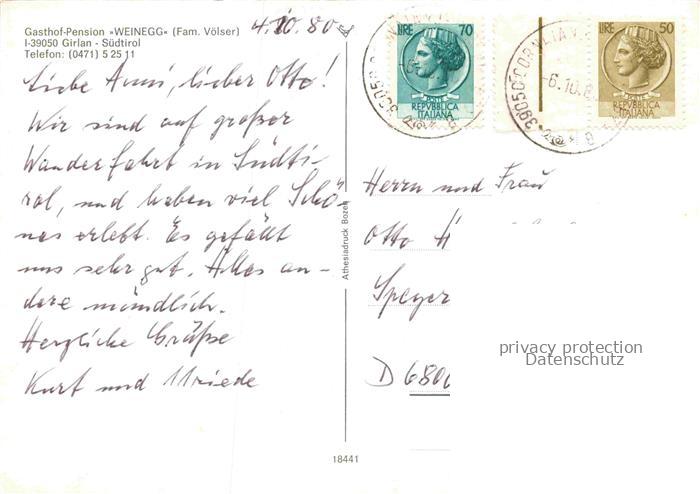 Gasthof-Pension »WEINEGG« (Fam. Völser)
I-39050 Girlan - Südtirol
Telefon: (0471) 5 25 11
4.10.80
Liebe Anni, lieber Otto!
Wir sind auf großer
Wanderfahrt in Südti-
rol, und haben viel Schö-
nes erlebt. Es gefällt
uns sehr gut. Alles an-
dere mündlich.
Herzliche Grüße
Kurt und Friede
Athesiadruck Bozen
18441
LIRE 70
REPVBBLICA
ITALIANA
LIRE 50
REPVBBLICA
ITALIANA
39050 CORNAIANO
-6.10.8
Herrn und Frau
Otto H
Speyer
D 680
privacy protection
Datenschutz